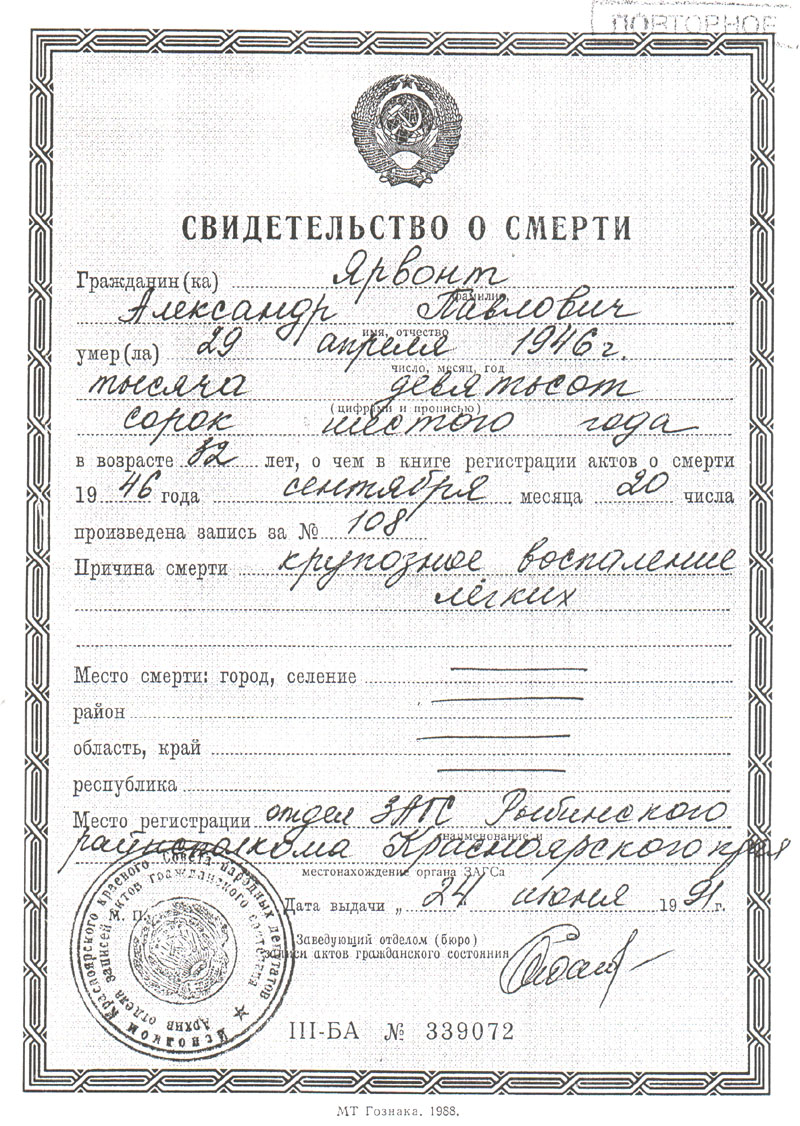 ПОВТОРНОЕ
СВИДЕТЕЛЬСТВО О СМЕРТИ
Гражданин(ка) Ярвонт
фамилия,
Александр Павлович
имя, отчество
умер(ла) 29 апреля 1946 г.
число, месяц, год
тысяча девятьсот
(цифрами и прописью)
сорок шестого года
в возрасте 32 лет, о чем в книге регистрации актов о смерти
1946 года сентября месяца 20 числа
произведена запись за № 108
Причина смерти крупозное воспаление
лёгких
Место смерти: город, селение
район
область, край
республика
Место регистрации отдел ЗАГС Рыбинского
наименование и
райисполкома Красноярского края
местонахождение органа ЗАГСа
Дата выдачи „ 24 июня 1991 г.
М. П.
Заведующий отделом (бюро)
записи актов гражданского состояния
Исполком Красноярского краевого Совета народных депутатов
Архив отдела записей актов гражданского состояния
III-БА № 339072
МТ Гознака. 1988.